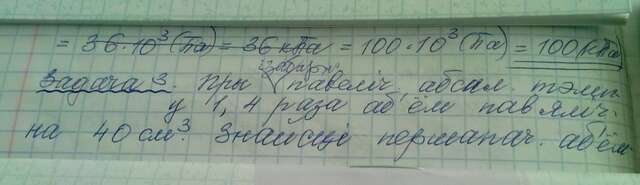 = 36·10³ (Па) = 36 кПа = 100·10³ (Па) = 100 (кПа)
Задача 3. Пры ізабарн. павеліч. абсал. тэмп.
у 1,4 раза аб'ём павяліч.
на 40 см³. Знайсці першапач. аб'ём